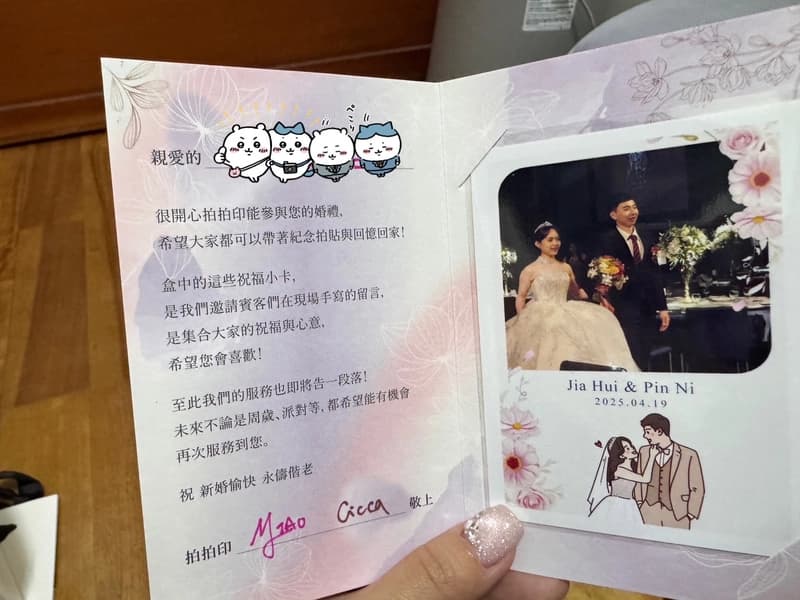 親愛的
ぺこり
很開心拍拍印能參與您的婚禮,
希望大家都可以帶著紀念拍貼與回憶回家!
盒中的這些祝福小卡,
是我們邀請賓客們在現場手寫的留言,
是集合大家的祝福與心意,
希望您會喜歡!
至此我們的服務也即將告一段落!
未來不論是周歲、派對等, 都希望能有機會
再次服務到您。
祝 新婚愉快 永儔偕老
拍拍印 MIAO Cicca 敬上
Jia Hui & Pin Ni
2025.04.19